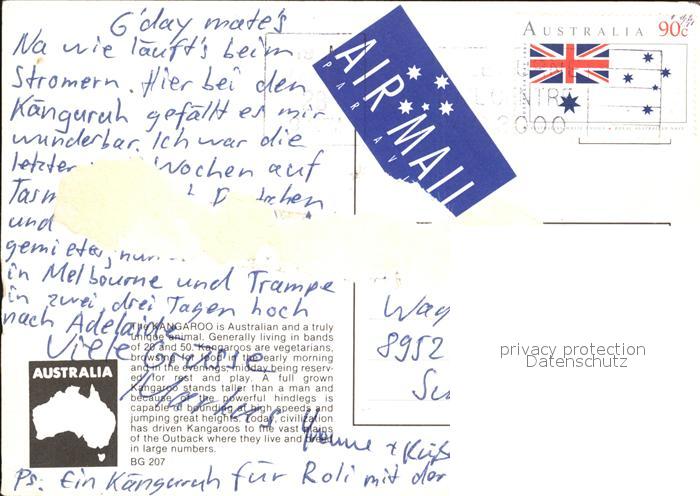 G'day mate's
Na wie läuft's beim
Stromern. Hier bei den
Känguruh gefällt es mir
wunderbar. Ich war die
Wochen auf
und
in Melbourne und Trampe
in zwei drei Tagen hoch
nach Adelaide
Viele Grüsse
Markus
Yvonne +
Ps: Ein Känguruh für Roli mit der
AIR MAIL
PAR AV
AUSTRALIA 90c
3000
8952
privacy protection
Datenschutz
AUSTRALIA
The KANGAROO is Australian and a truly
unique animal. Generally living in bands
of 20 and 50. Kangaroos are vegetarians,
browsing for food in the early morning
and in the evenings, midday being reserv-
ed for rest and play. A full grown
Kangaroo stands taller than a man and
because of the powerful hindlegs is
capable of bounding at high speeds and
jumping great heights. Today, civilization
has driven Kangaroos to the vast plains
of the Outback where they live and breed
in large numbers.
BG 207